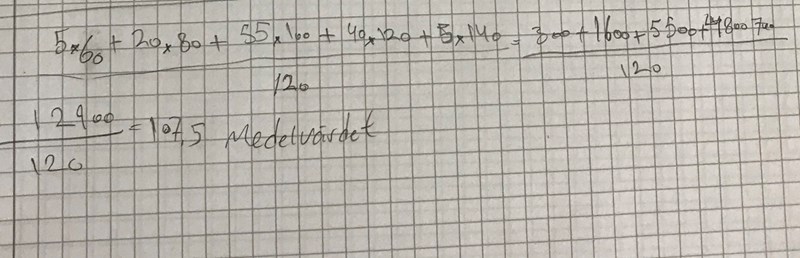 5×60 + 20×80 + 55×100 + 40×120 + 5×140 = 300 + 1600 + 5500 + 4800 700
120 120
12900
120
= 107,5 Medelvärdet